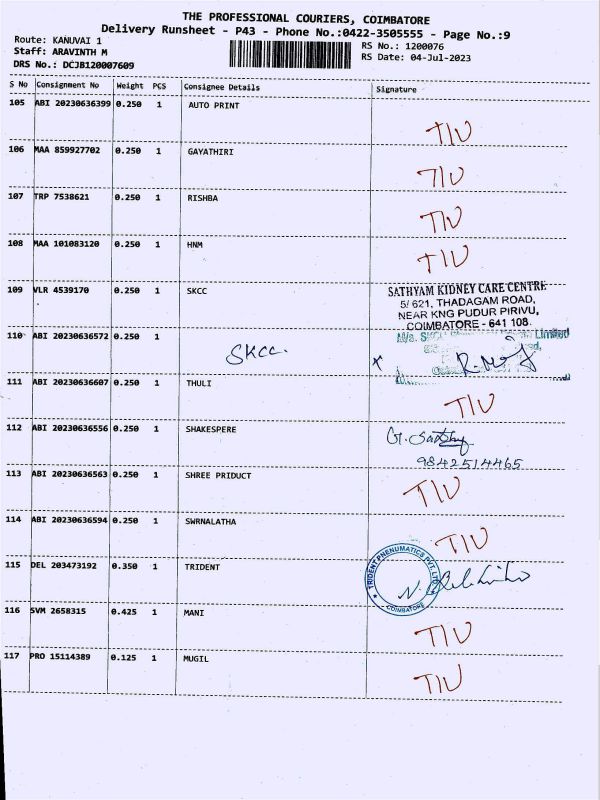 THE PROFESSIONAL COURIERS, COIMBATORE
Delivery Runsheet - P43 - Phone No.:0422-3505555 - Page No.:9
Route: KANUVAI 1
RS No.: 1200076
Staff: ARAVINTH M
RS Date: 04-Jul-2023
DRS No.: DCJB120007609
S No Consignment No Weight PCS Consignee Details Signature
105 ABI 20230636399 0.250 1 AUTO PRINT
TIU
106 MAA 859927702 0.250 1 GAYATHIRI
TIU
107 TRP 7538621 0.250 1 RISHBA
TIU
108 MAA 101083120 0.250 1 HNM
TIU
109 VLR 4539170 0.250 1 SKCC
SATHYAM KIDNEY CARE CENTRE
5/ 621, THADAGAM ROAD,
NEAR KNG PUDUR PIRIVU,
COIMBATORE - 641 108.
110 ABI 20230636572 0.250 1
SKCC.
Limited
111 ABI 20230636607 0.250 1 THULI
TIU
112 ABI 20230636556 0.250 1 SHAKESPERE
9842514465
113 ABI 20230636563 0.250 1 SHREE PRIDUCT
TIU
114 ABI 20230636594 0.250 1 SWRNALATHA
TIU
115 DEL 203473192 0.350 1 TRIDENT
TRIDENT PNEUMATICS PVT LTD
COIMBATORE
116 SVM 2658315 0.425 1 MANI
TIU
117 PRO 15114389 0.125 1 MUGIL
TIU